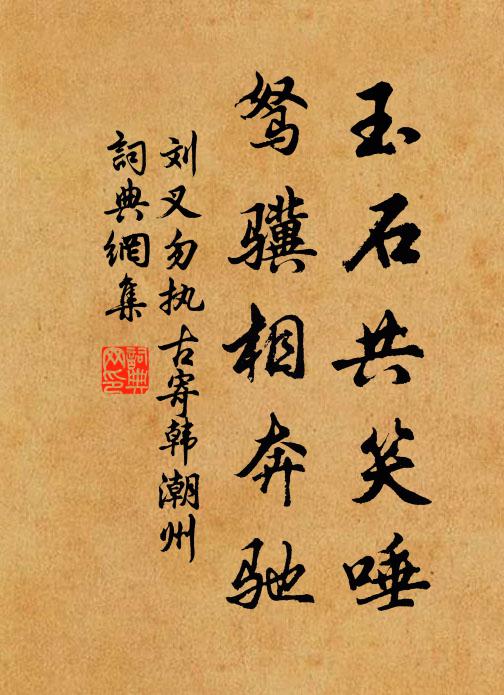 玉石共笑唾
驽骥相奔驰
刘叉勿执古寄韩潮州
詞典網集
詞典网印